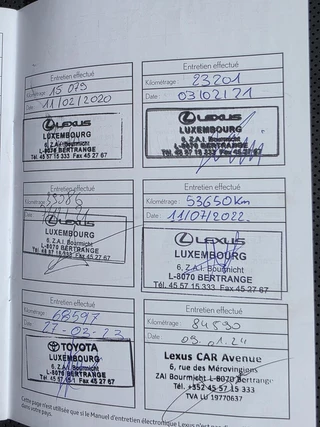 Entretien effectué
Kilométrage : 15 079
Date : 11/02/2020
LEXUS
LUXEMBOURG
6, Z.A.I. Bourmicht
L-8070 BERTRANGE
Tél. 45 57 15 333 Fax 45 27 67
Entretien effectué
Kilométrage : 23201
Date : 03/02/21
LEXUS
LUXEMBOURG
6, Z.A.I. Bourmicht
L-8070 BERTRANGE
Tél. 45 57 15 333 Fax 45 27 67
Entretien effectué
Kilométrage
Date
LEXUS
LUXEMBOURG
6, Z.A.I. Bourmicht
L-8070 BERTRANGE
Tél. 45 57 15 333 Fax 45 27 67
Entretien effectué
Kilométrage : 53650 Km
Date : 11/07/2022.
LEXUS
LUXEMBOURG
6, Z.A.I. Bourmicht
L-8070 BERTRANGE
Tél. 45 57 15 333 Fax 45 27 67
Entretien effectué
Kilométrage : 68597
Date : 27-03-23
TOYOTA
LUXEMBOURG
6, Z.A.I. Bourmicht
L-8070 BERTRANGE
Tél. 45 57 15-1 Fax 45 27 67
Entretien effectué
Kilométrage : 84590
Date : 09.01.24
Lexus CAR Avenue
6, rue des Mérovingiens
ZAI Bourmicht L-8070 Bertrange
Tél. +352 45 57 15 1
TVA LU 19770637
Cette page n'est utilisée que si le Manuel d'entretien électronique Lexus n'est pas
dans votre pays.